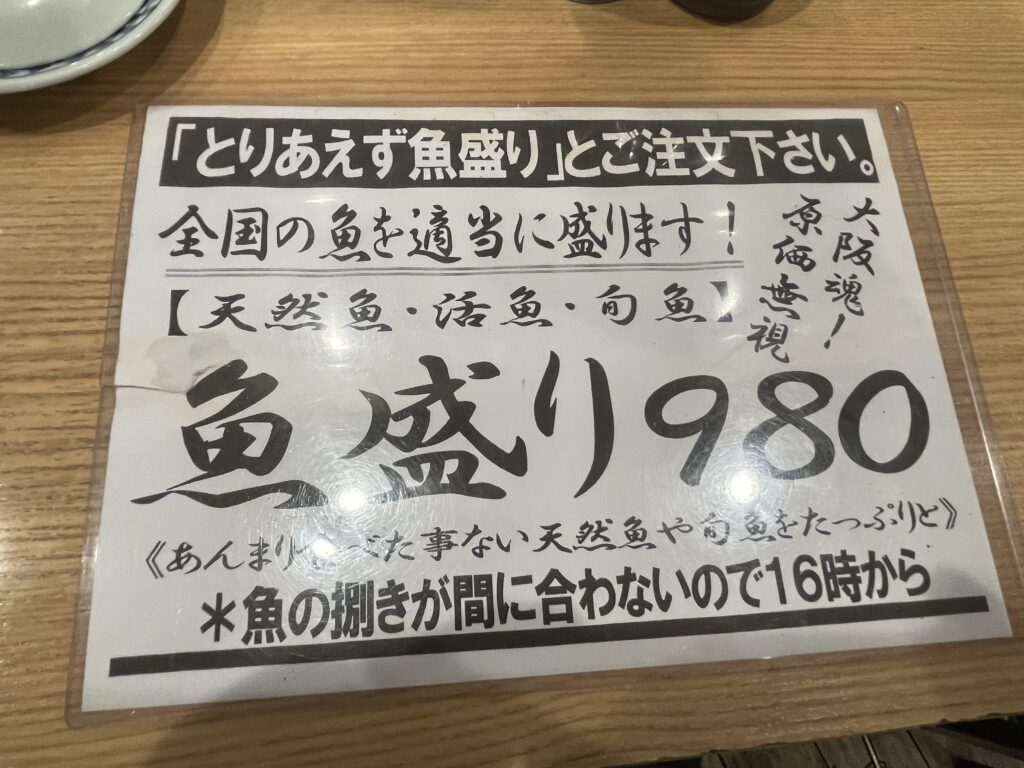 「とりあえず魚盛り」とご注文下さい。
全国の魚を適当に盛ります!
大阪魂!
原価無視
【天然魚・活魚・旬魚】
魚盛り980
《あんまり食べた事ない天然魚や旬魚をたっぷりと》
*魚の捌きが間に合わないので16時から